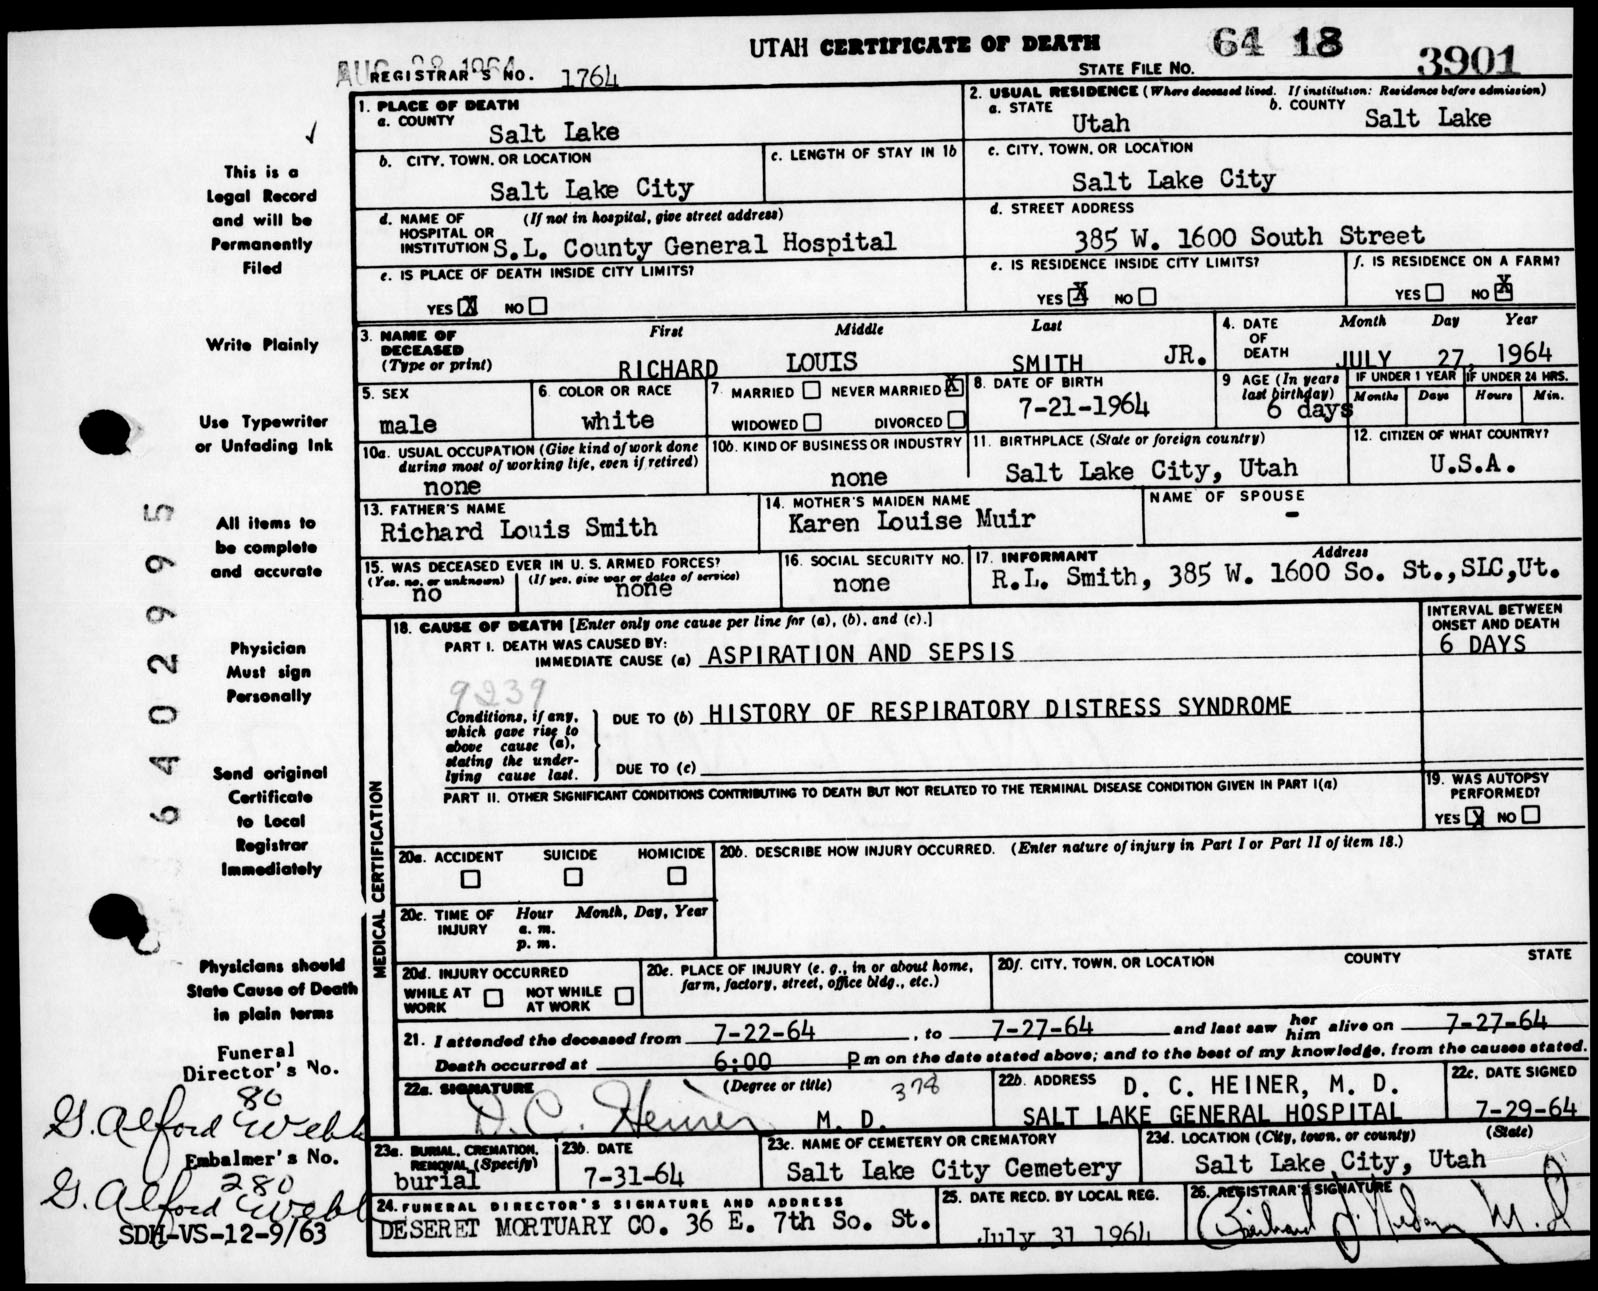 UTAH CERTIFICATE OF DEATH 64 18 3901
REGISTRAR'S NO. 1764 STATE FILE NO.
1. PLACE OF DEATH
a. COUNTY
Salt Lake
2. USUAL RESIDENCE (Where deceased lived. If institution: Residence before admission)
a. STATE b. COUNTY
Utah Salt Lake
b. CITY, TOWN, OR LOCATION
Salt Lake City
c. LENGTH OF STAY IN 1b
c. CITY, TOWN, OR LOCATION
Salt Lake City
d. NAME OF (If not in hospital, give street address)
HOSPITAL OR
INSTITUTION S.L. County General Hospital
d. STREET ADDRESS
385 W. 1600 South Street
e. IS PLACE OF DEATH INSIDE CITY LIMITS?
YES X NO
e. IS RESIDENCE INSIDE CITY LIMITS?
YES X NO
f. IS RESIDENCE ON A FARM?
YES NO X
3. NAME OF First Middle Last
DECEASED
(Type or print) RICHARD LOUIS SMITH JR.
4. DATE Month Day Year
OF
DEATH JULY 27, 1964
5. SEX
male
6. COLOR OR RACE
white
7. MARRIED NEVER MARRIED X
WIDOWED DIVORCED
8. DATE OF BIRTH
7-21-1964
9 AGE (In years
last birthday)
6 days
IF UNDER 1 YEAR IF UNDER 24 HRS.
Months Days Hours Min.
10a. USUAL OCCUPATION (Give kind of work done
during most of working life, even if retired)
none
10b. KIND OF BUSINESS OR INDUSTRY
none
11. BIRTHPLACE (State or foreign country)
Salt Lake City, Utah
12. CITIZEN OF WHAT COUNTRY?
U.S.A.
13. FATHER'S NAME
Richard Louis Smith
14. MOTHER'S MAIDEN NAME
Karen Louise Muir
NAME OF SPOUSE
-
15. WAS DECEASED EVER IN U. S. ARMED FORCES?
(Yes, no, or unknown) (If yes, give war or dates of service)
no none
16. SOCIAL SECURITY NO.
none
17. INFORMANT Address
R.L. Smith, 385 W. 1600 So. St.,SLC,Ut.
MEDICAL CERTIFICATION
18. CAUSE OF DEATH [Enter only one cause per line for (a), (b), and (c).]
PART I. DEATH WAS CAUSED BY:
IMMEDIATE CAUSE (a) ASPIRATION AND SEPSIS
INTERVAL BETWEEN
ONSET AND DEATH
6 DAYS
9239
Conditions, if any,
which gave rise to
above cause (a),
stating the under-
lying cause last.
DUE TO (b) HISTORY OF RESPIRATORY DISTRESS SYNDROME
DUE TO (c)
PART II. OTHER SIGNIFICANT CONDITIONS CONTRIBUTING TO DEATH BUT NOT RELATED TO THE TERMINAL DISEASE CONDITION GIVEN IN PART I(a)
19. WAS AUTOPSY
PERFORMED?
YES X NO
20a. ACCIDENT SUICIDE HOMICIDE
20b. DESCRIBE HOW INJURY OCCURRED. (Enter nature of injury in Part I or Part II of item 18.)
20c. TIME OF Hour Month, Day, Year
INJURY a. m.
p. m.
20d. INJURY OCCURRED
WHILE AT NOT WHILE
WORK AT WORK
20e. PLACE OF INJURY (e. g., in or about home,
farm, factory, street, office bldg., etc.)
20f. CITY, TOWN, OR LOCATION COUNTY STATE
21. I attended the deceased from 7-22-64, to 7-27-64 and last saw her him alive on 7-27-64
Death occurred at 6:00 P m on the date stated above; and to the best of my knowledge, from the causes stated.
22a. SIGNATURE (Degree or title) 378
D. C. Heiner M. D.
22b. ADDRESS D. C. HEINER, M. D.
SALT LAKE GENERAL HOSPITAL
22c. DATE SIGNED
7-29-64
23a. BURIAL, CREMATION,
REMOVAL (Specify)
burial
23b. DATE
7-31-64
23c. NAME OF CEMETERY OR CREMATORY
Salt Lake City Cemetery
23d. LOCATION (City, town, or county) (State)
Salt Lake City, Utah
24. FUNERAL DIRECTOR'S SIGNATURE AND ADDRESS
DESERET MORTUARY CO. 36 E. 7th So. St.
25. DATE RECD. BY LOCAL REG.
July 31 1964
26. REGISTRAR'S SIGNATURE
This is a
Legal Record
and will be
Permanently
Filed
Write Plainly
Use Typewriter
or Unfading Ink
All items to
be complete
and accurate
Physician
Must sign
Personally
Send original
Certificate
to Local
Registrar
Immediately
Physicians should
State Cause of Death
in plain terms
Funeral
Director's No.
80
G. Alford Webb
Embalmer's No.
280
G. Alford Webb
SDH-VS-12-9/63
6402995